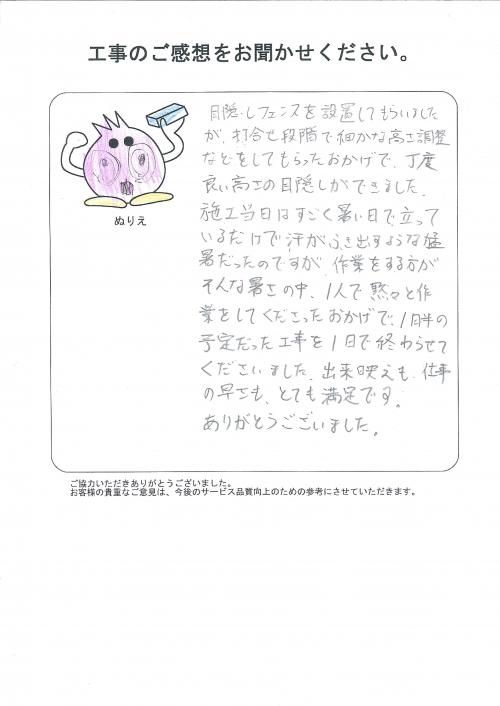 工事のご感想をお聞かせください。
目隠しフェンスを設置してもらいました
が、打合せ段階で細かな高さ調整
などをしてもらったおかげで、丁度
良い高さの目隠しができました。
施工当日はすごく暑い日で立って
いるだけで汗がふき出すような猛
暑だったのですが、作業をする方が
そんな暑さの中、1人で黙々と作
業をしてくださったおかげで、1日半の
予定だった工事を1日で終わらせて
くださいました。出来映えも、仕事
の早さも、とても満足です。
ありがとうございました。
ぬりえ
ご協力いただきありがとうございました。
お客様の貴重なご意見は、今後のサービス品質向上のための参考にさせていただきます。